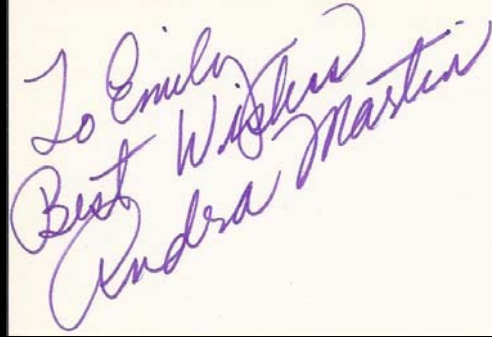 To Emily
Best Wishes
Andra Martin